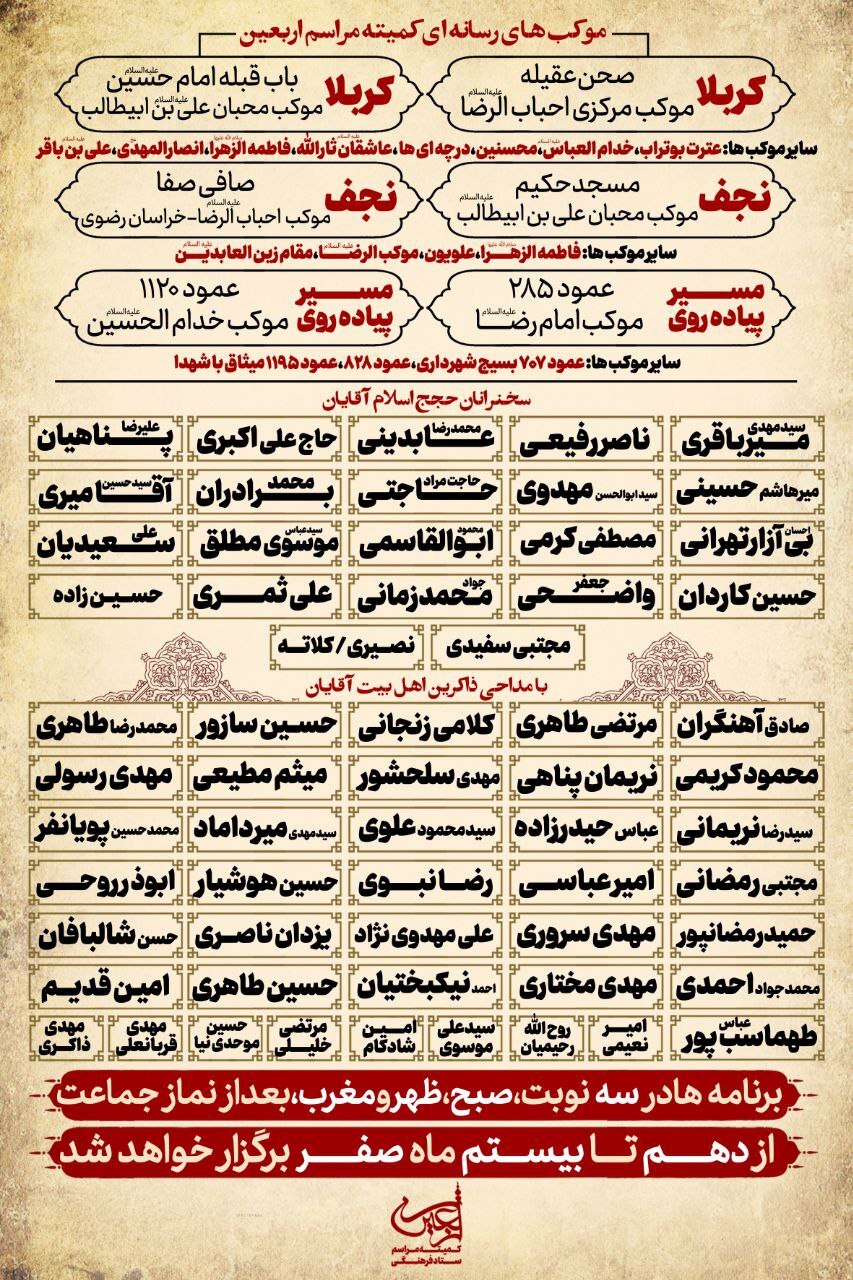 موکب های رسانه ای کمیته مراسم اربعین
کربلا صحن عقیله
موکب مرکزی احباب الرضا علیه‌السلام
کربلا باب قبله امام حسین علیه‌السلام
موکب محبان علی بن ابیطالب علیه‌السلام
سایر موکب ها: عترت بوتراب، خدام العباس علیه السلام، محسنین، درچه ای ها، عاشقان ثارالله علیه السلام، فاطمه الزهرا سلام الله علیها، انصار المهدی عج، علی بن باقر علیه السلام
نجف مسجد حکیم
موکب محبان علی بن ابیطالب علیه‌السلام
نجف صافی صفا
موکب احباب الرضا علیه‌السلام - خراسان رضوی
سایر موکب ها: فاطمه الزهرا سلام الله علیها، علویون، موکب الرضا علیه السلام، مقام زین العابدین علیه السلام
مسیر پیاده روی عمود ۲۸۵
موکب امام رضا علیه‌السلام
مسیر پیاده روی عمود ۱۱۲۰
موکب خدام الحسین علیه‌السلام
سایر موکب ها: عمود ۷۰۷ بسیج شهرداری، عمود ۸۲۸، عمود ۱۱۹۵ میثاق با شهدا
سخنرانان حجج اسلام آقایان
سیدمهدی میرباقری
ناصر رفیعی
محمدرضا عابدینی
حاج علی اکبری
علیرضا پناهیان
میرهاشم حسینی
سید ابوالحسن مهدوی
حاجت مراد حاجتی
محمد برادران
سید حسین آقامیری
احسان بی آزار تهرانی
مصطفی کرمی
محمود ابوالقاسمی
سیدعباس موسوی مطلق
علی سعیدیان
حسین کاردان
جعفر واضحی
جواد محمدزمانی
علی ثمری
حسین زاده
مجتبی سفیدی
نصیری/کلاته
با مداحی ذاکرین اهل بیت آقایان
صادق آهنگران
مرتضی طاهری
کلامی زنجانی
حسین سازور
محمدرضا طاهری
محمود کریمی
نریمان پناهی
مهدی سلحشور
میثم مطیعی
مهدی رسولی
سیدرضا نریمانی
عباس حیدرزاده
سیدمحمود علوی
سیدمهدی میرداماد
محمدحسین پویانفر
مجتبی رمضانی
امیر عباسی
رضا نبوی
حسین هوشیار
ابوذر روحی
حمید رمضانپور
مهدی سروری
علی مهدوی نژاد
یزدان ناصری
حسن شالبافان
محمدجواد احمدی
مهدی مختاری
احمد نیکبختیان
حسین طاهری
امین قدیم
عباس طهماسب پور
امیر نعیمی
روح الله رحیمیان
سیدعلی موسوی
امین شادکام
مرتضی خلیلی
حسین موحدی نیا
مهدی قربانعلی
مهدی ذاکری
برنامه ها در سه نوبت، صبح، ظهر و مغرب، بعد از نماز جماعت
از دهم تا بیستم ماه صفر برگزار خواهد شد
اربعین
کمیته مراسم
ستاد فرهنگی